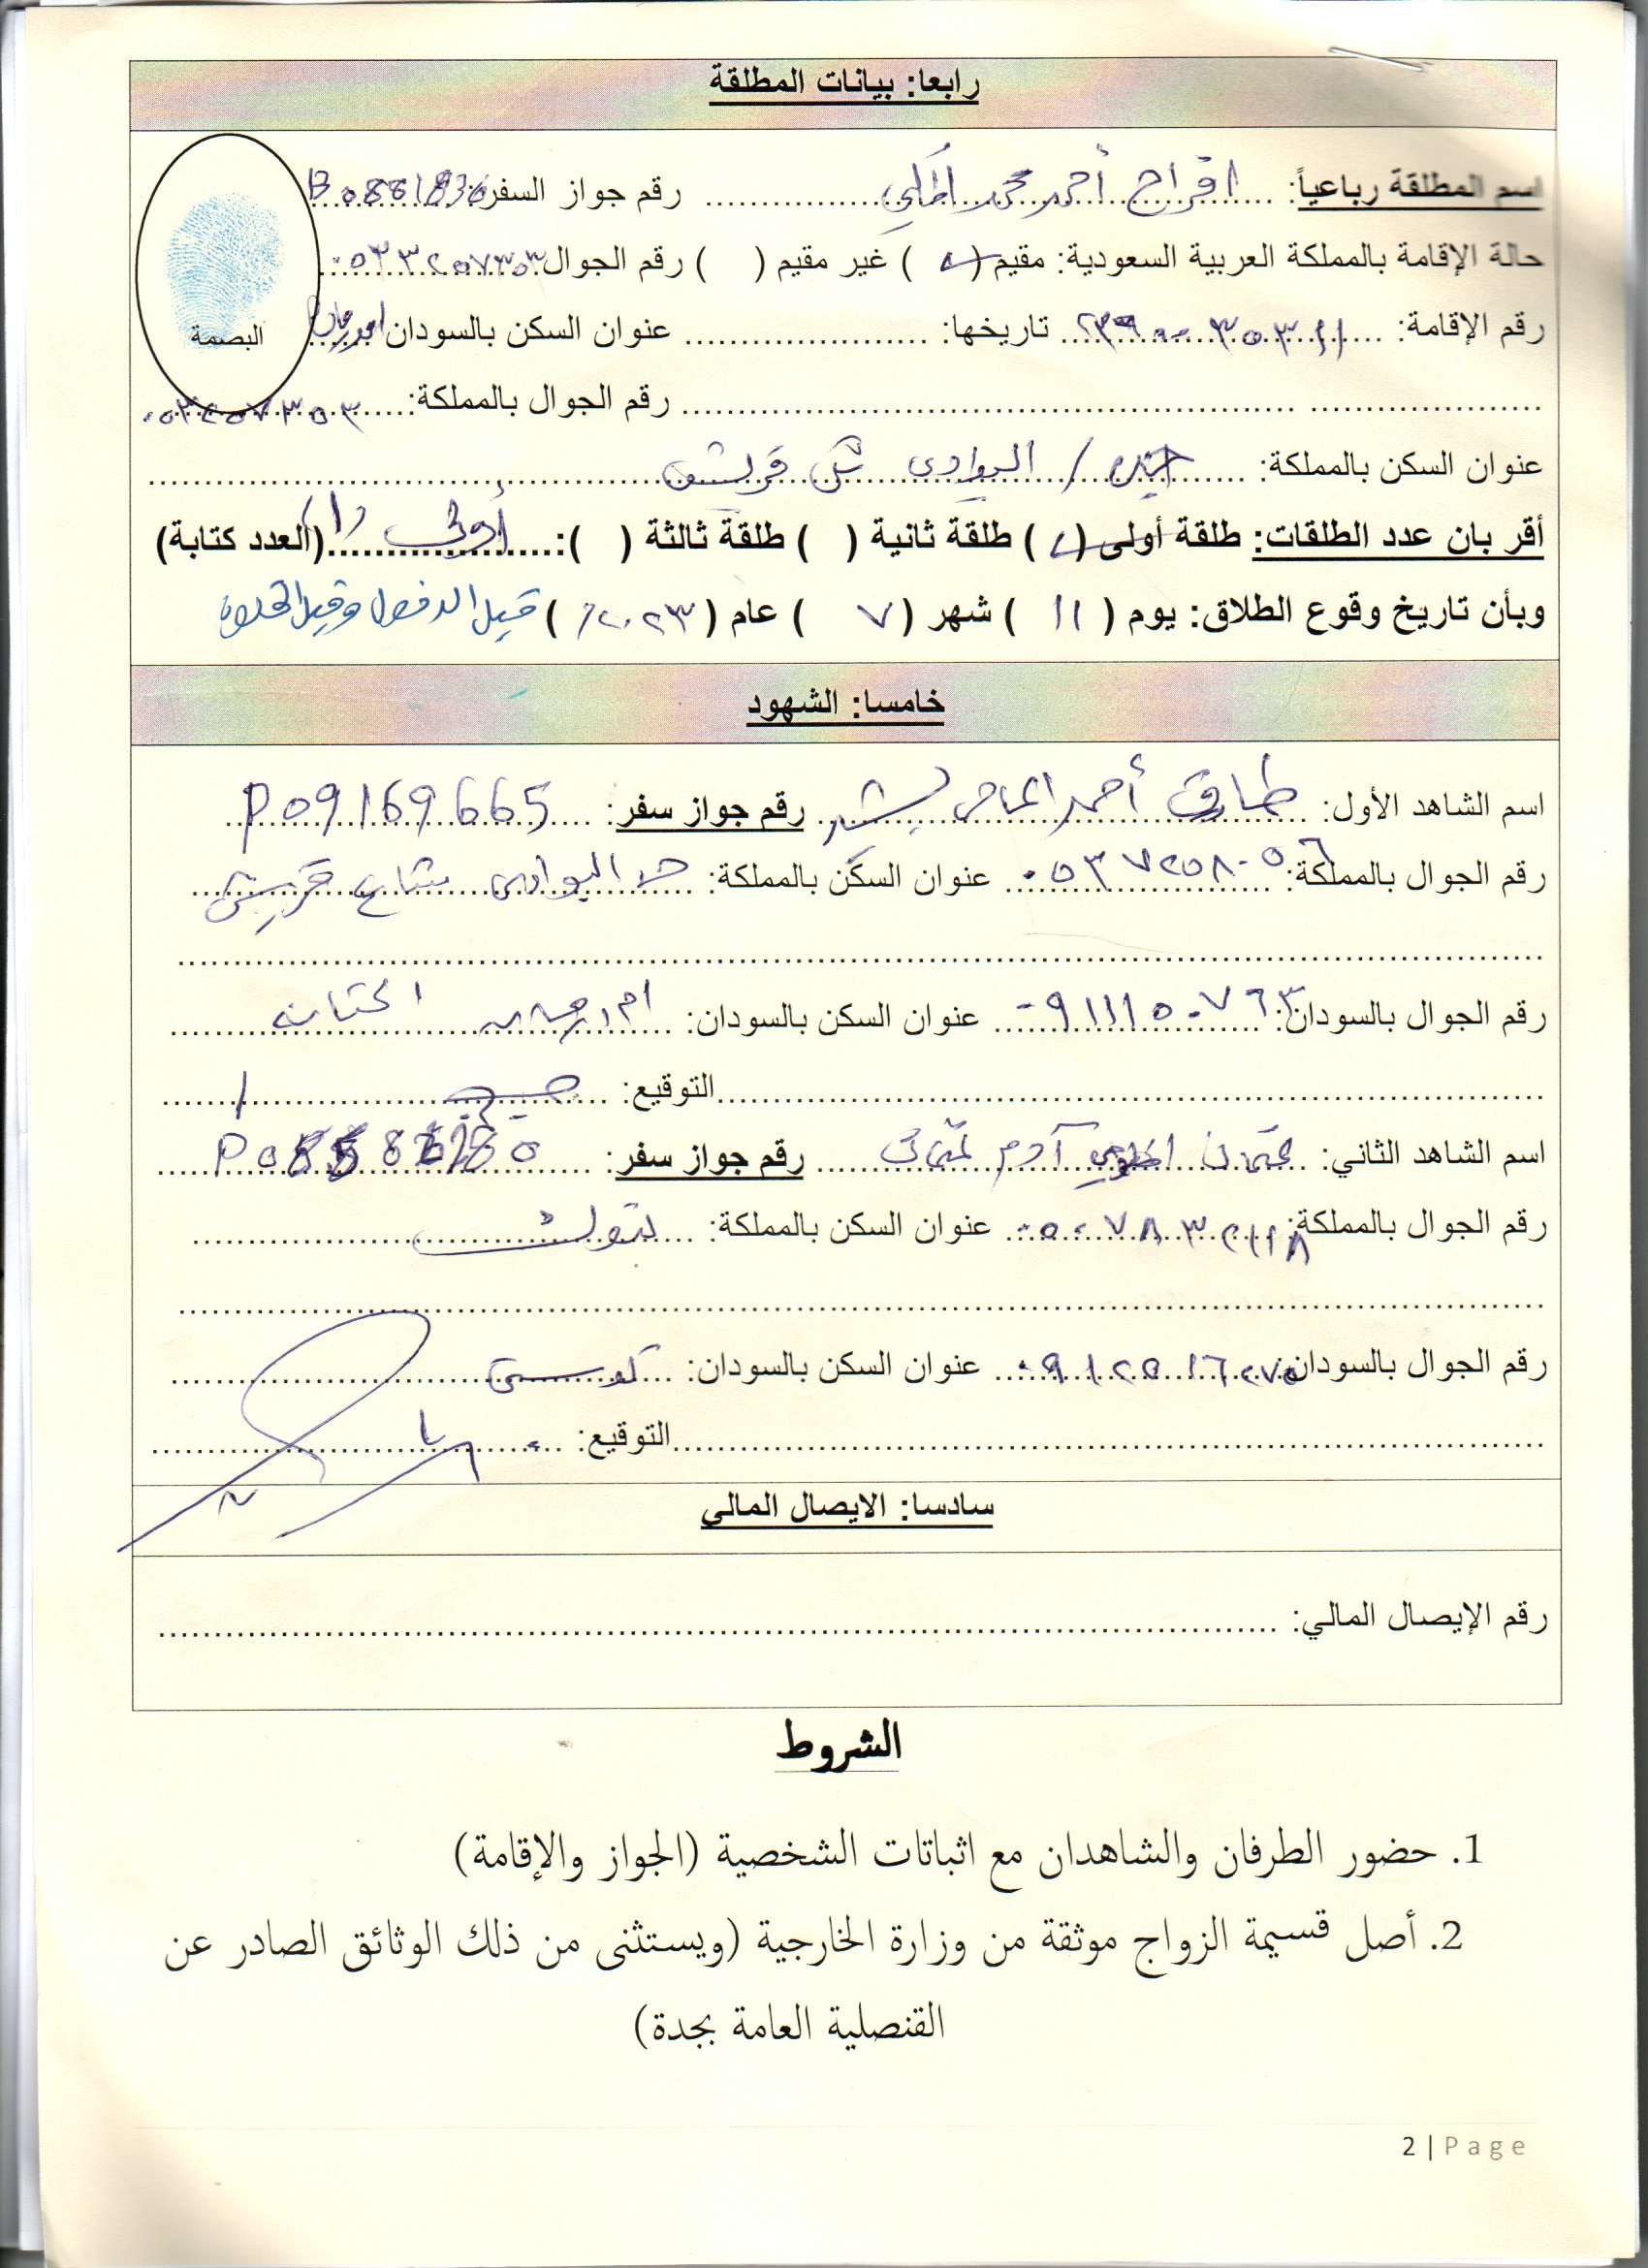 رابعا: بيانات المطلقة
اسم المطلقة رباعياً: افراح أحمد محمد رقم جواز السفر: B0881836
حالة الإقامة بالمملكة العربية السعودية: مقيم ( ) غير مقيم ( ) رقم الجوال
رقم الإقامة: تاريخها: عنوان السكن بالسودان امدرمان
البصمة
رقم الجوال بالمملكة:
عنوان السكن بالمملكة: / البوادي قريش
أقر بان عدد الطلقات: طلقة أولى ( ) طلقة ثانية ( ) طلقة ثالثة ( ): أولى (١) (العدد كتابة)
وبأن تاريخ وقوع الطلاق: يوم ( ١١ ) شهر ( ٧ ) عام ( ٢٠٢٣ ) قبل الدخول وقبل الخلوة
خامسا: الشهود
اسم الشاهد الأول: طارق أحمد بشير رقم جواز سفر: P09169665
رقم الجوال بالمملكة: ٠٥٣٧٢٥٨٠٥٦ عنوان السكن بالمملكة: البوادي شارع قريش
رقم الجوال بالسودان: ٠٩١١١٥٠٧٦٣ عنوان السكن بالسودان: ام درمان
التوقيع:
اسم الشاهد الثاني: عثمان آدم رقم جواز سفر:
رقم الجوال بالمملكة: ٠٥٠٧٨٣٢١١٨ عنوان السكن بالمملكة: تبوك
رقم الجوال بالسودان: ٠٩١٢٥١٦٢٧٥ عنوان السكن بالسودان: كوستي
التوقيع:
سادسا: الايصال المالي
رقم الإيصال المالي:
الشروط
1. حضور الطرفان والشاهدان مع اثباتات الشخصية (الجواز والإقامة)
2. أصل قسيمة الزواج موثقة من وزارة الخارجية (ويستثنى من ذلك الوثائق الصادر عن
القنصلية العامة بجدة)
2 | Page